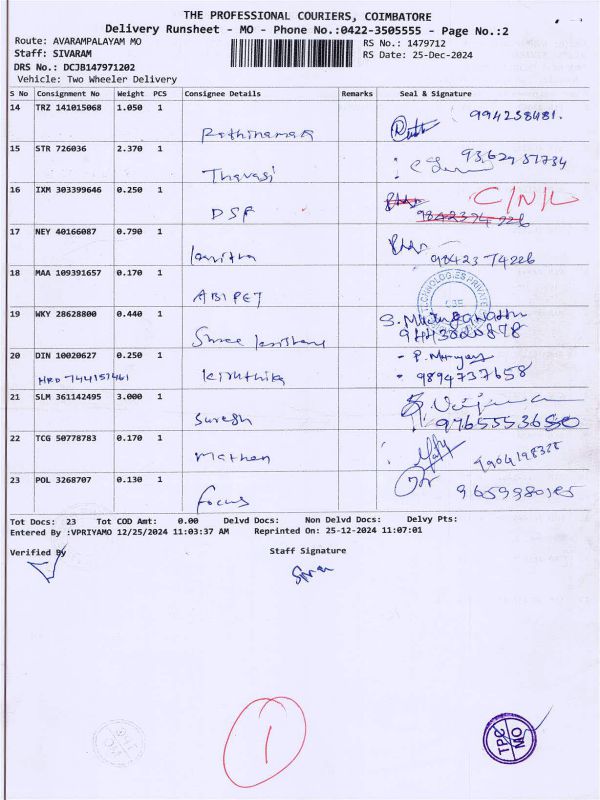 THE PROFESSIONAL COURIERS, COIMBATORE
Delivery Runsheet - MO - Phone No.:0422-3505555 - Page No.:2
Route: AVARAMPALAYAM MO RS No.: 1479712
Staff: SIVARAM RS Date: 25-Dec-2024
DRS No.: DCJB147971202
Vehicle: Two Wheeler Delivery
S No Consignment No Weight PCS Consignee Details Remarks Seal & Signature
14 TRZ 141015068 1.050 1
Rathinamala
15 STR 726036 2.370 1 9362951734
Thavasi
16 IXM 303399646 0.250 1 C/N/L
DSF 9842374226
17 NEY 40166087 0.790 1
Kavitha 9842374226
18 MAA 109391657 0.170 1
ABIPET
TECHNOLOGIES PRIVATE
CBE
19 WKY 28628800 0.440 1
Shree 9443020878
20 DIN 10020627 0.250 1
HRD 744157461 Kiruthika 9894737658
21 SLM 361142495 3.000 1
Suresh
22 TCG 50778783 0.170 1
Mathen 9904198328
23 POL 3268707 0.130 1
Focus
Tot Docs: 23 Tot COD Amt: 0.00 Delvd Docs: Non Delvd Docs: Delvy Pts:
Entered By :VPRIYAMO 12/25/2024 11:03:37 AM Reprinted On: 25-12-2024 11:07:01
Verified By Staff Signature
1
TPC
MO